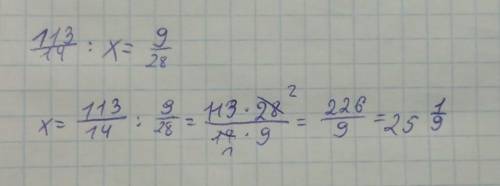 113/14 : x = 9/28
x = 113/14 : 9/28 = 113 · 28 2 / 14 1 · 9 = 226/9 = 25 1/9